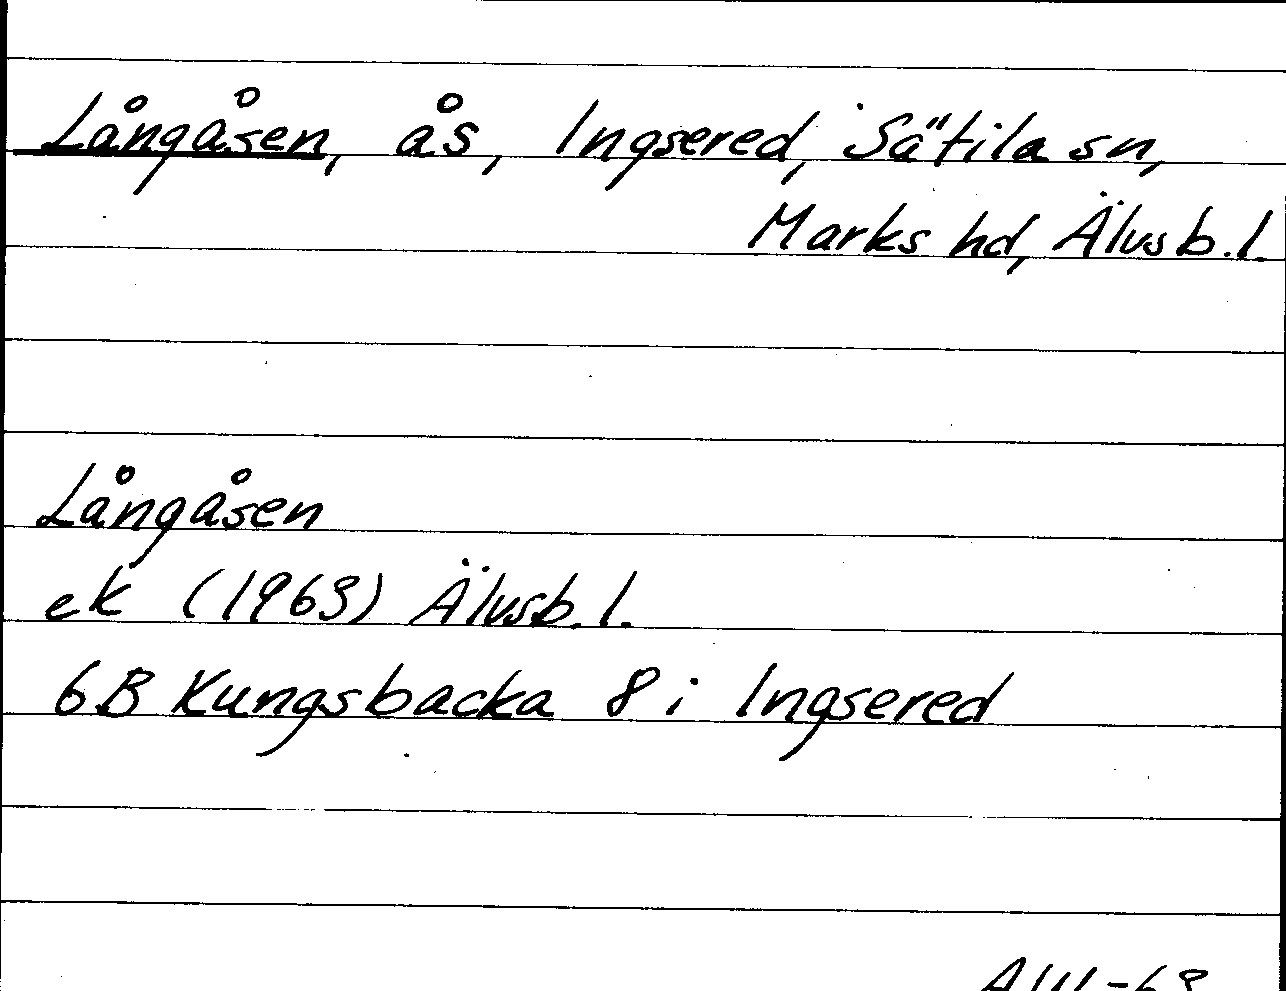 Långåsen, ås, Ingsered, Sätila sn,
Marks hd, Älvsb.l.
Långåsen
ek (1963) Älvsb.l.
6B Kungsbacka 8 i Ingsered